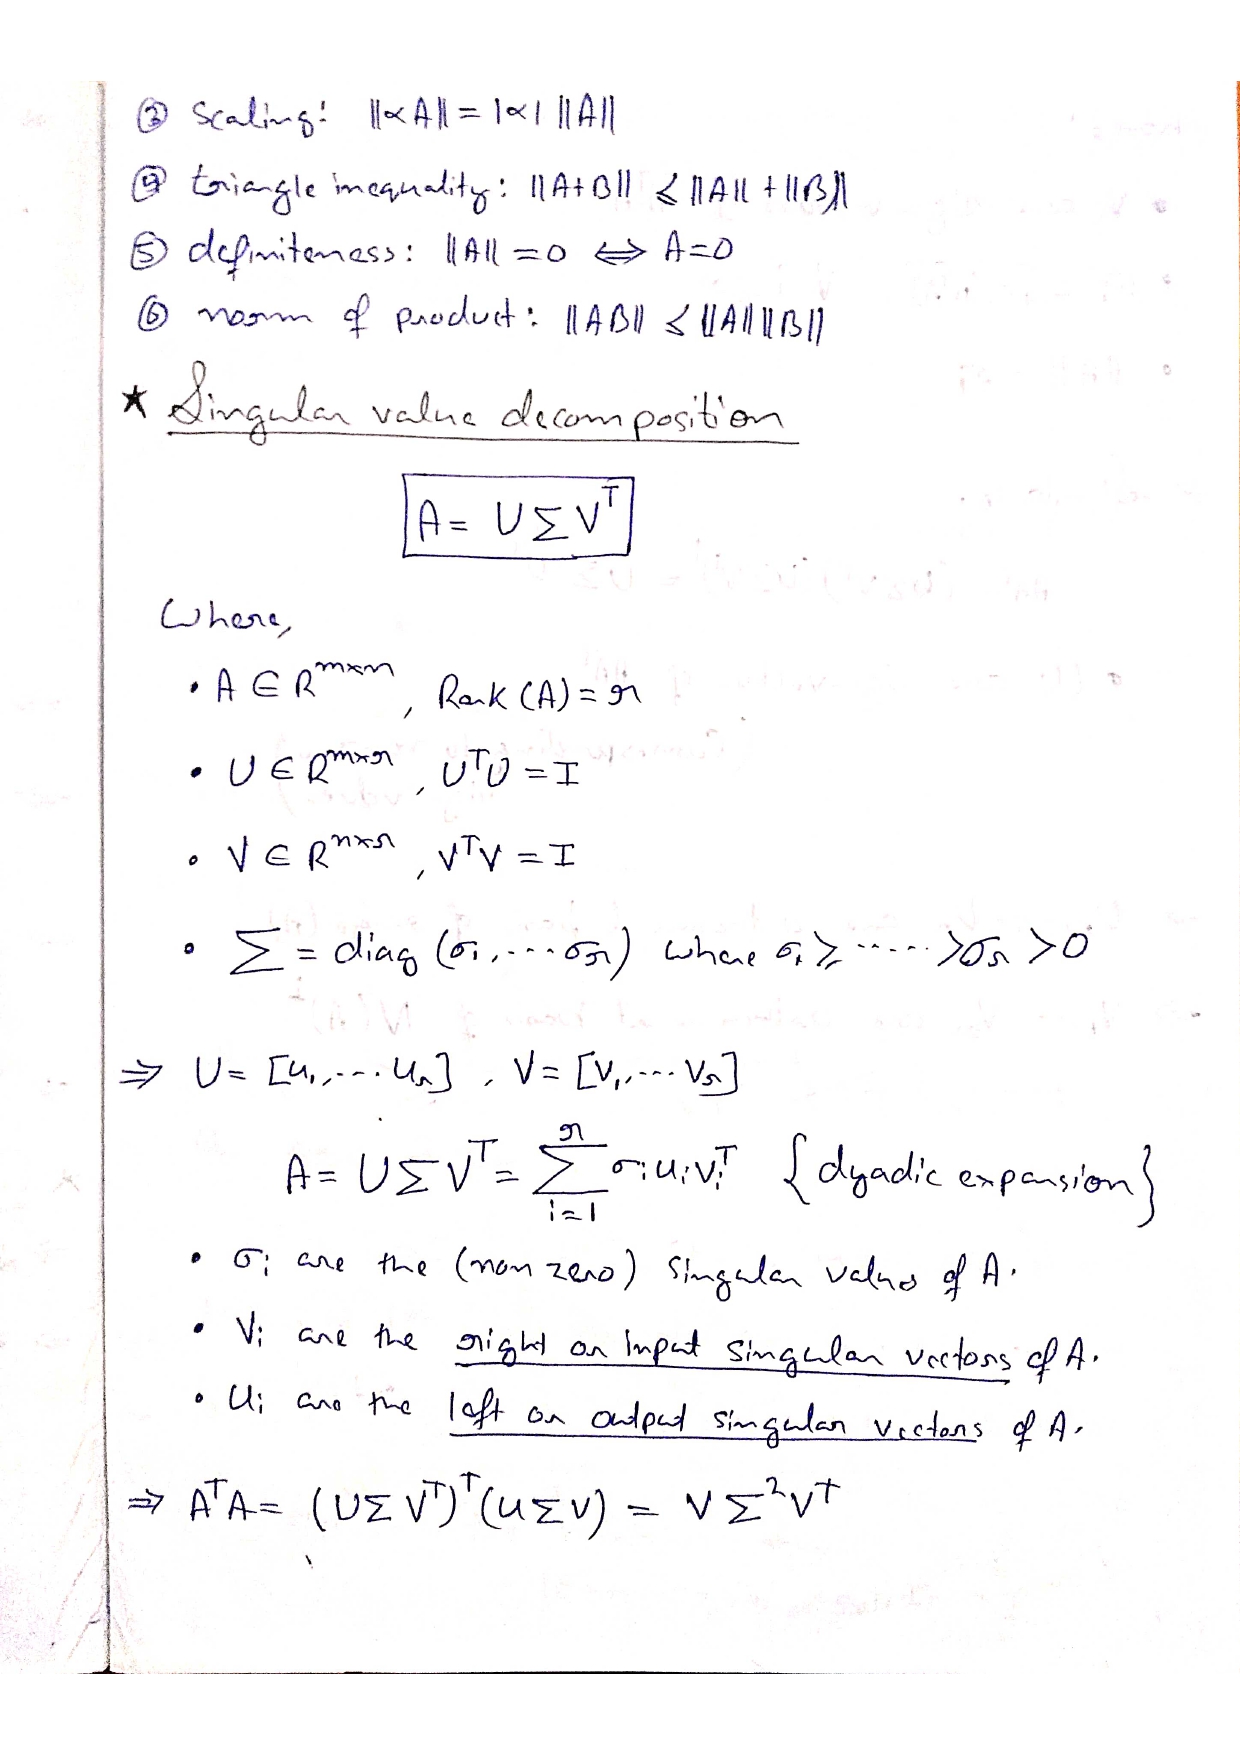 ③ Scaling: ||∝A|| = |∝| ||A||
④ triangle inequality: ||A+B|| ≤ ||A|| + ||B||
⑤ definiteness: ||A|| = 0 ⇔ A=0
⑥ norm of product: ||AB|| ≤ ||A|| ||B||
★ Singular value decomposition
A = UΣVᵀ
Where,
• A ∈ R^{m×n}, Rank (A) = r
• U ∈ R^{m×r}, UᵀU = I
• V ∈ R^{n×r}, VᵀV = I
• Σ = diag (σ₁, ... σᵣ) where σ₁ ≥ ..... > σᵣ > 0
⇒ U = [u₁, ... uᵣ], V = [v₁, ... vᵣ]
A = UΣVᵀ = Σ_{i=1}^{r} σᵢ uᵢ vᵢᵀ {dyadic expansion}
• σᵢ are the (non zero) singular values of A.
• Vᵢ are the right or input singular vectors of A.
• Uᵢ are the left or output singular vectors of A.
⇒ AᵀA = (UΣVᵀ)ᵀ(UΣV) = VΣ²Vᵀ